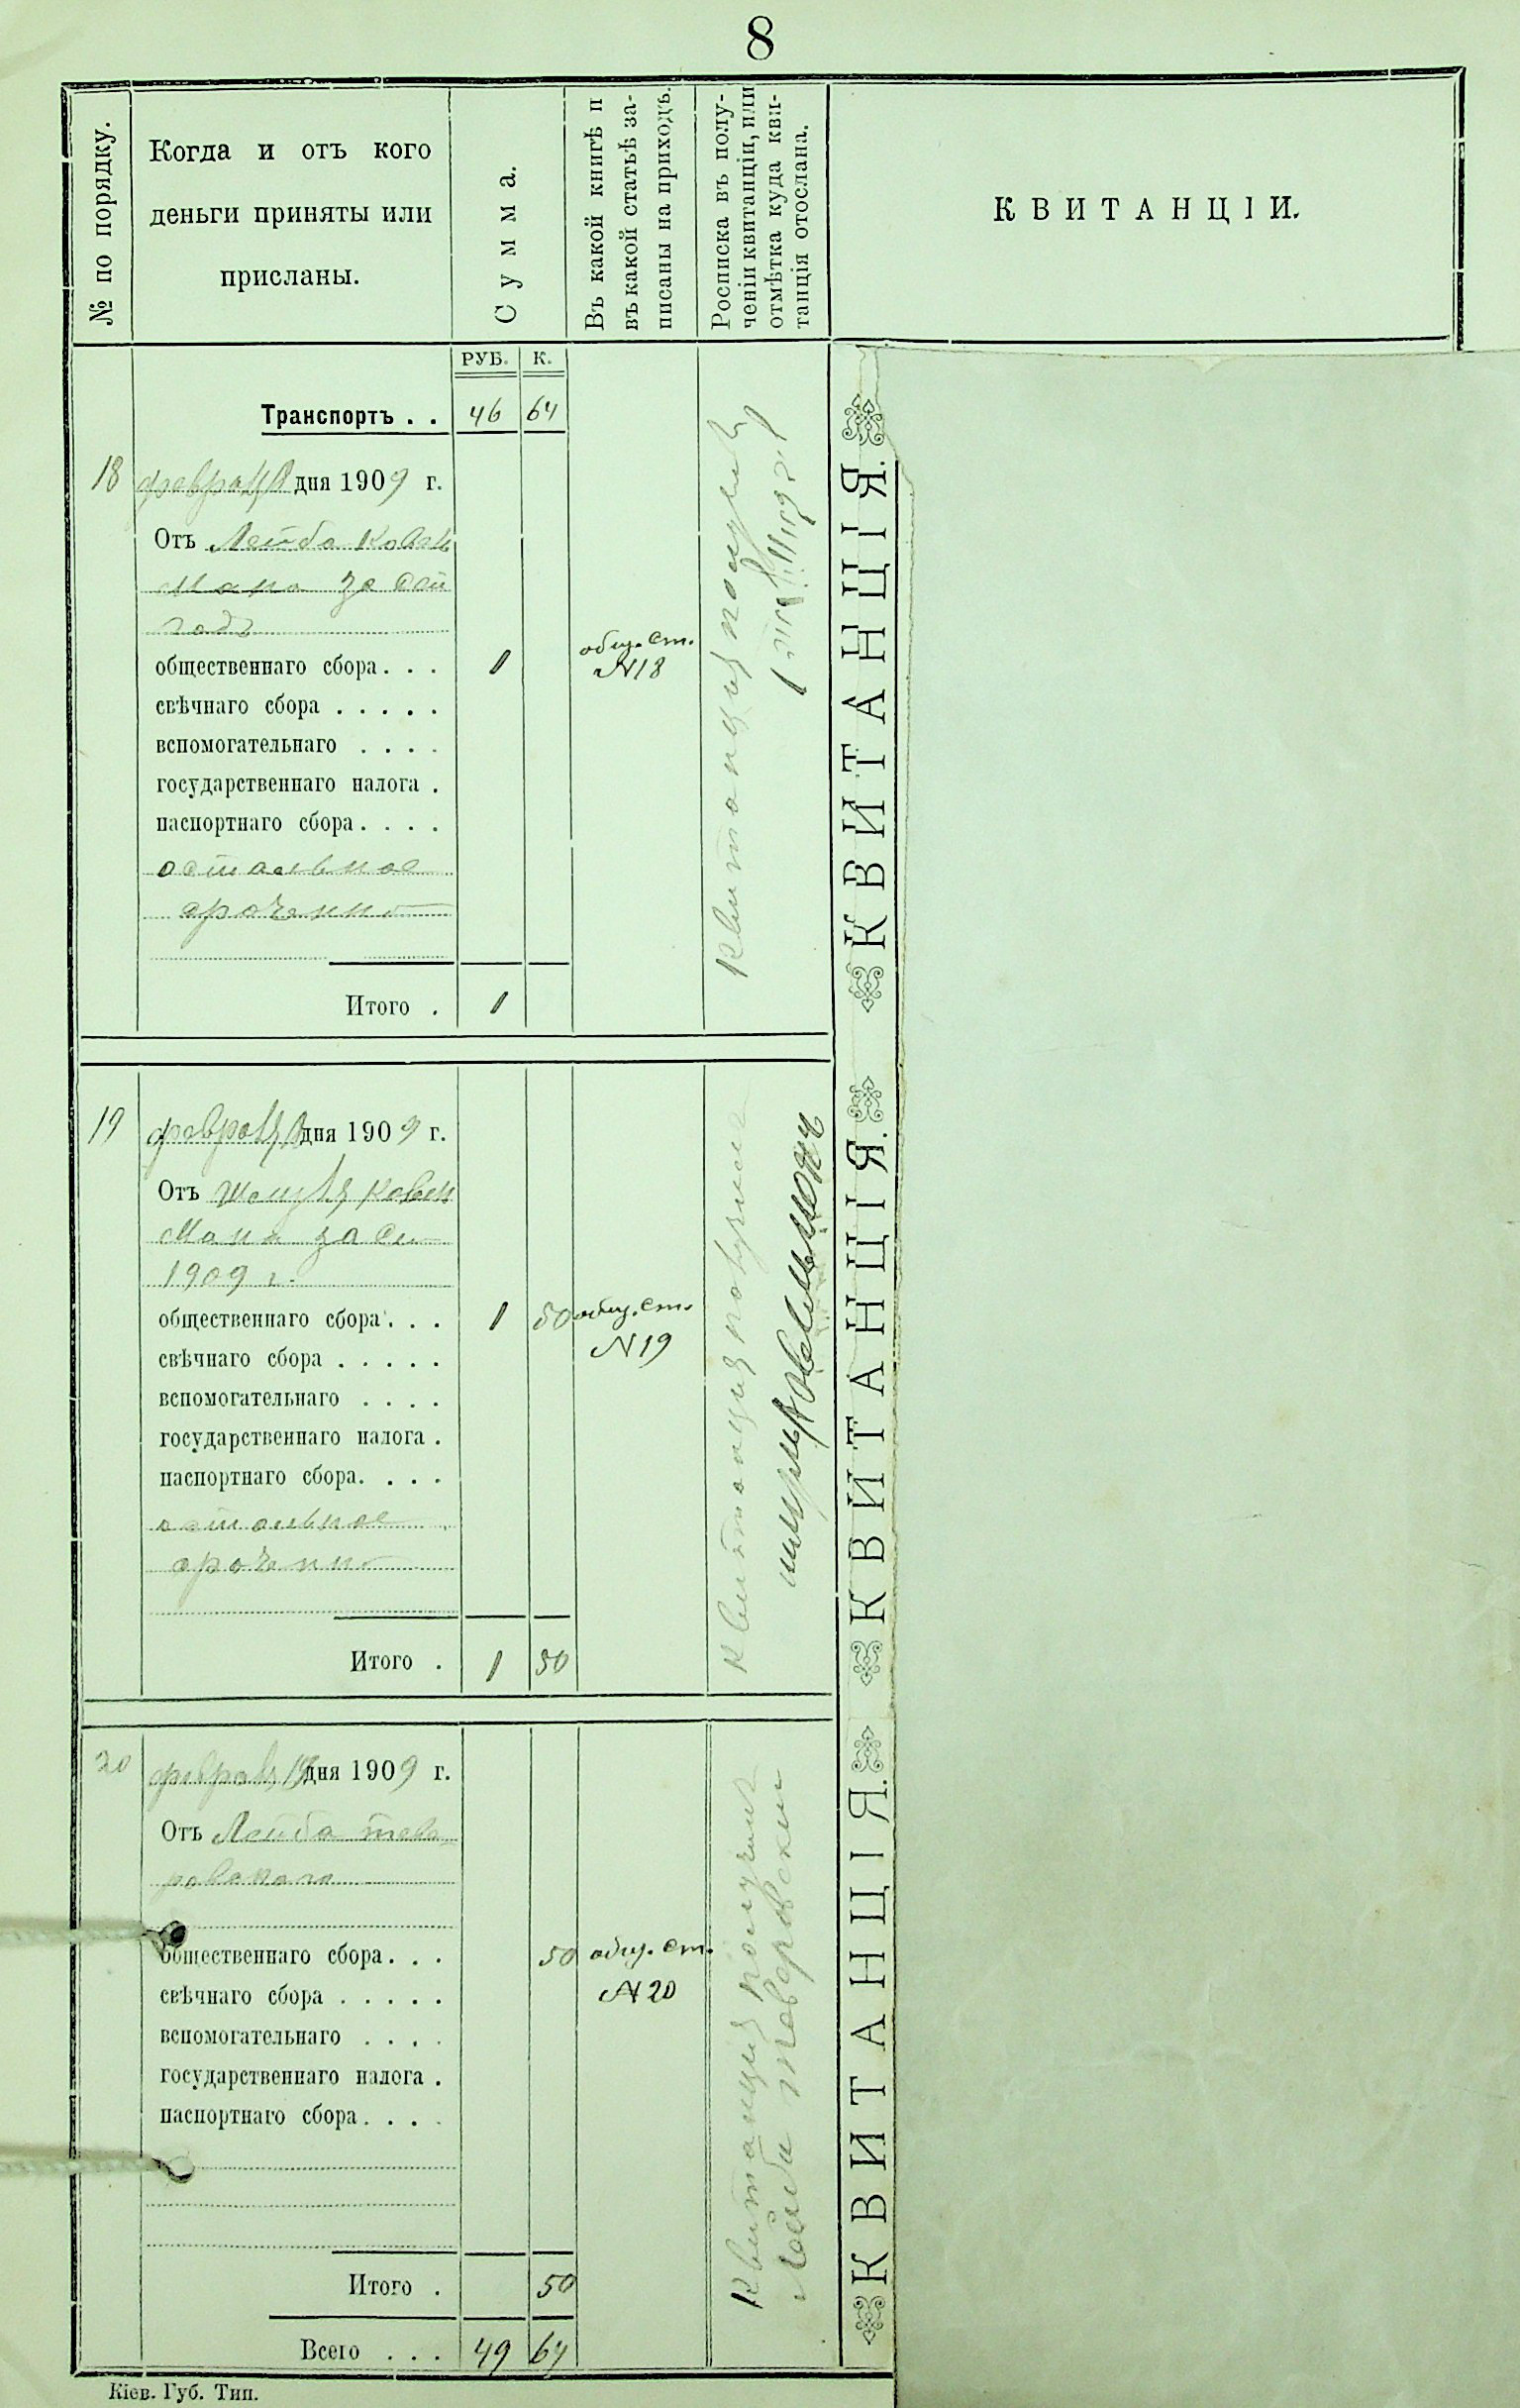 8
№ по порядку.
Когда и отъ кого
деньги приняты или
присланы.
Сумма.
Въ какой книгѣ и
въ какой статьѣ за-
писаны на приходъ.
Росписка въ полу-
ченіи квитанціи, или
отмѣтка куда кви-
танція отослана.
КВИТАНЦІИ.
РУБ. К.
Транспортъ . . 46 64
18 февраля дня 1909 г.
Отъ Лейба Ковель
мана за сей
годъ
общественнаго сбора. . . 1 общ. ст.
N 18
свѣчнаго сбора . . . . .
вспомогательнаго . . . .
государственнаго налога .
паспортнаго сбора. . . .
остальное
срочено
Итого . 1
Квитанцию получилъ
КВИТАНЦІЯ.
19 февраля дня 1909 г.
Отъ Ковель
мана за сей
1909 г.
общественнаго сбора. . . 1 50 общ. ст.
N 19
свѣчнаго сбора . . . . .
вспомогательнаго . . . .
государственнаго налога .
паспортнаго сбора. . . .
остальное
срочено
Итого . 1 50
Квитанция получилъ
Ковельманъ
КВИТАНЦІЯ.
20 февраля дня 1909 г.
Отъ Лейба Тава-
ровскаго
общественнаго сбора. . . 50 общ. ст.
N 20
свѣчнаго сбора . . . . .
вспомогательнаго . . . .
государственнаго налога .
паспортнаго сбора. . . .
Итого . 50
Всего . . . 49 64
Квитанция получилъ
Лейба Таваровский
КВИТАНЦІЯ.
Кіев. Губ. Тип.